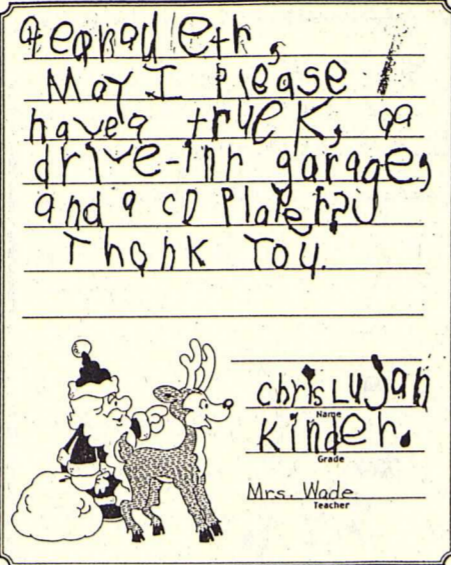 May I Please
have a truck, aa
drive-thr garage,
and a CD Player?
Thank You.
chris Lujan
Name
Kinder.
Grade
Mrs. Wade
Teacher